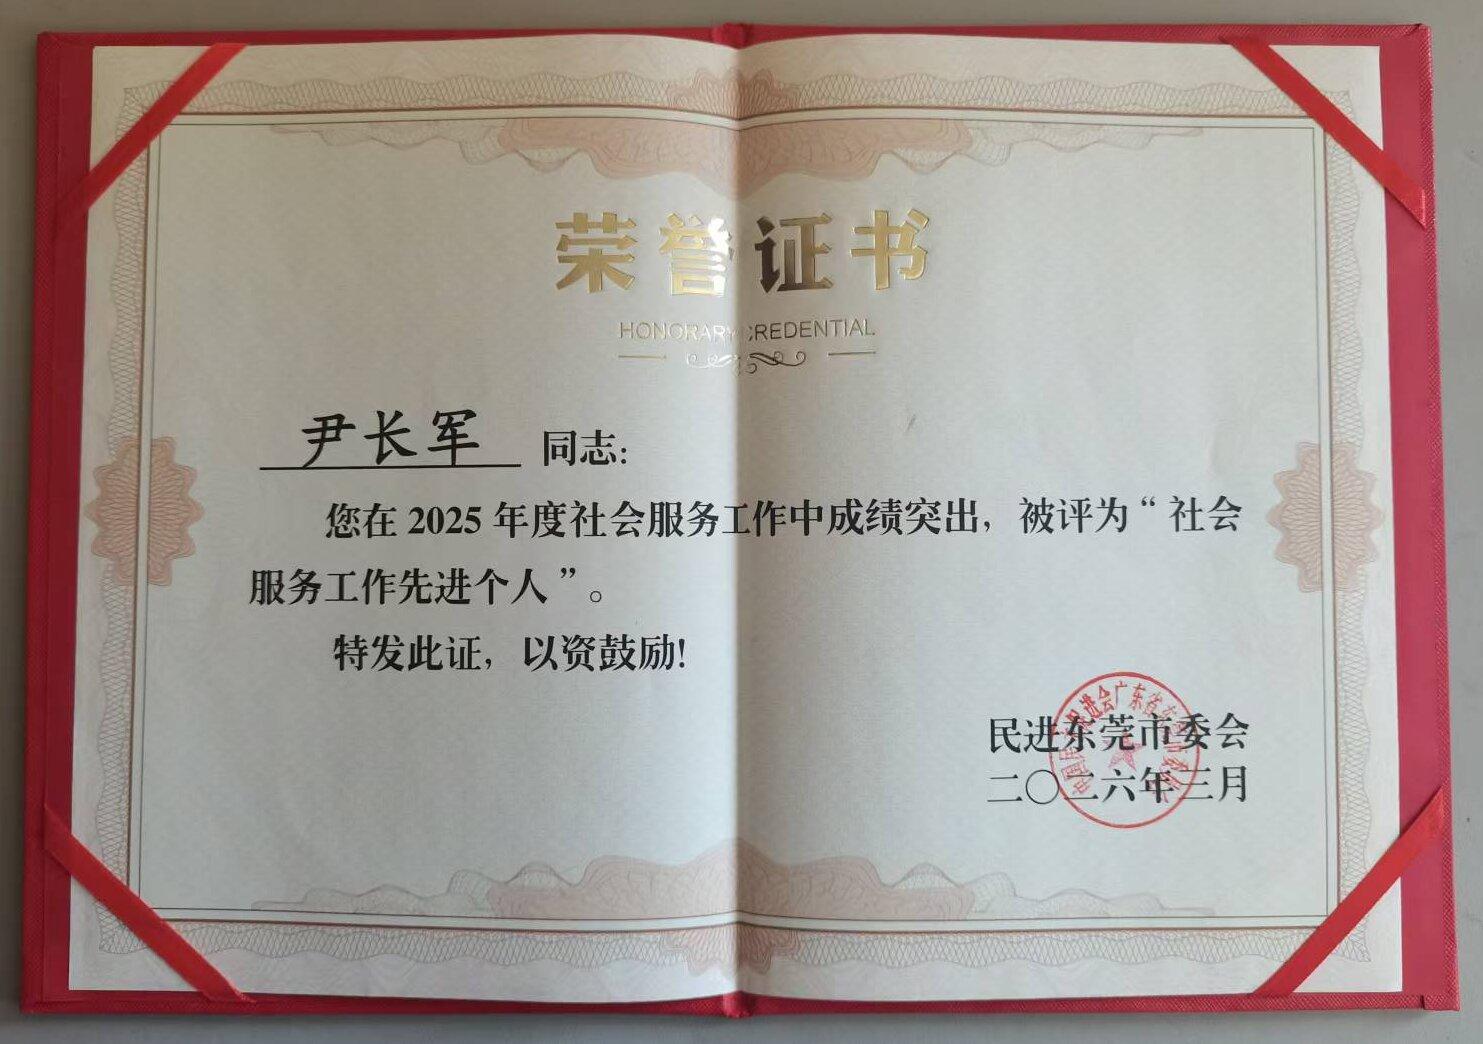 荣誉证书
HONORARY CREDENTIAL
尹长军 同志：
您在 2025 年度社会服务工作中成绩突出，被评为“社会
服务工作先进个人”。
特发此证，以资鼓励！
民进东莞市委会
二〇二六年三月